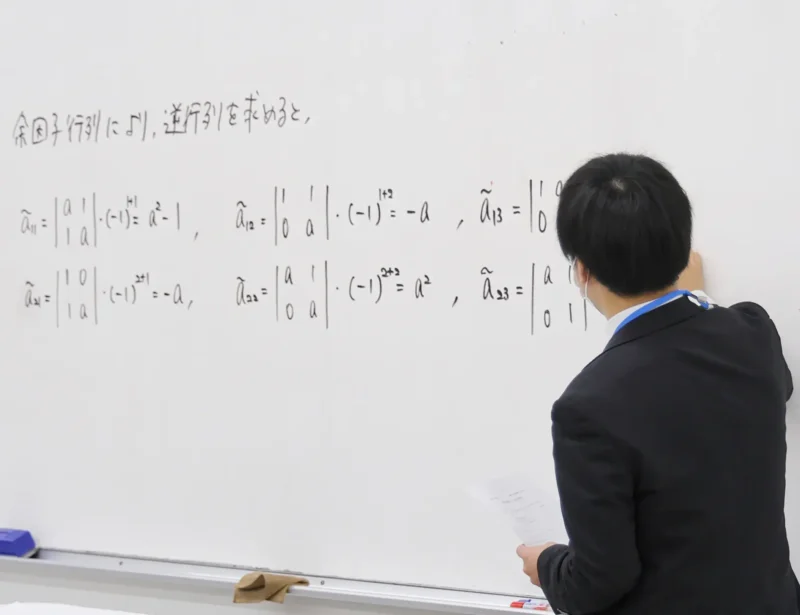 余因子行列により, 逆行列を求めると,
ã₁₁ = |a 1; 1 a|・(-1)¹⁺¹ = a² - 1, ã₁₂ = |1 1; 0 a|・(-1)¹⁺² = -a, ã₁₃ = |1 a; 0
ã₂₁ = |1 0; 1 a|・(-1)²⁺¹ = -a, ã₂₂ = |a 1; 0 a|・(-1)²⁺² = a², ã₂₃ = |a 1; 0 1|